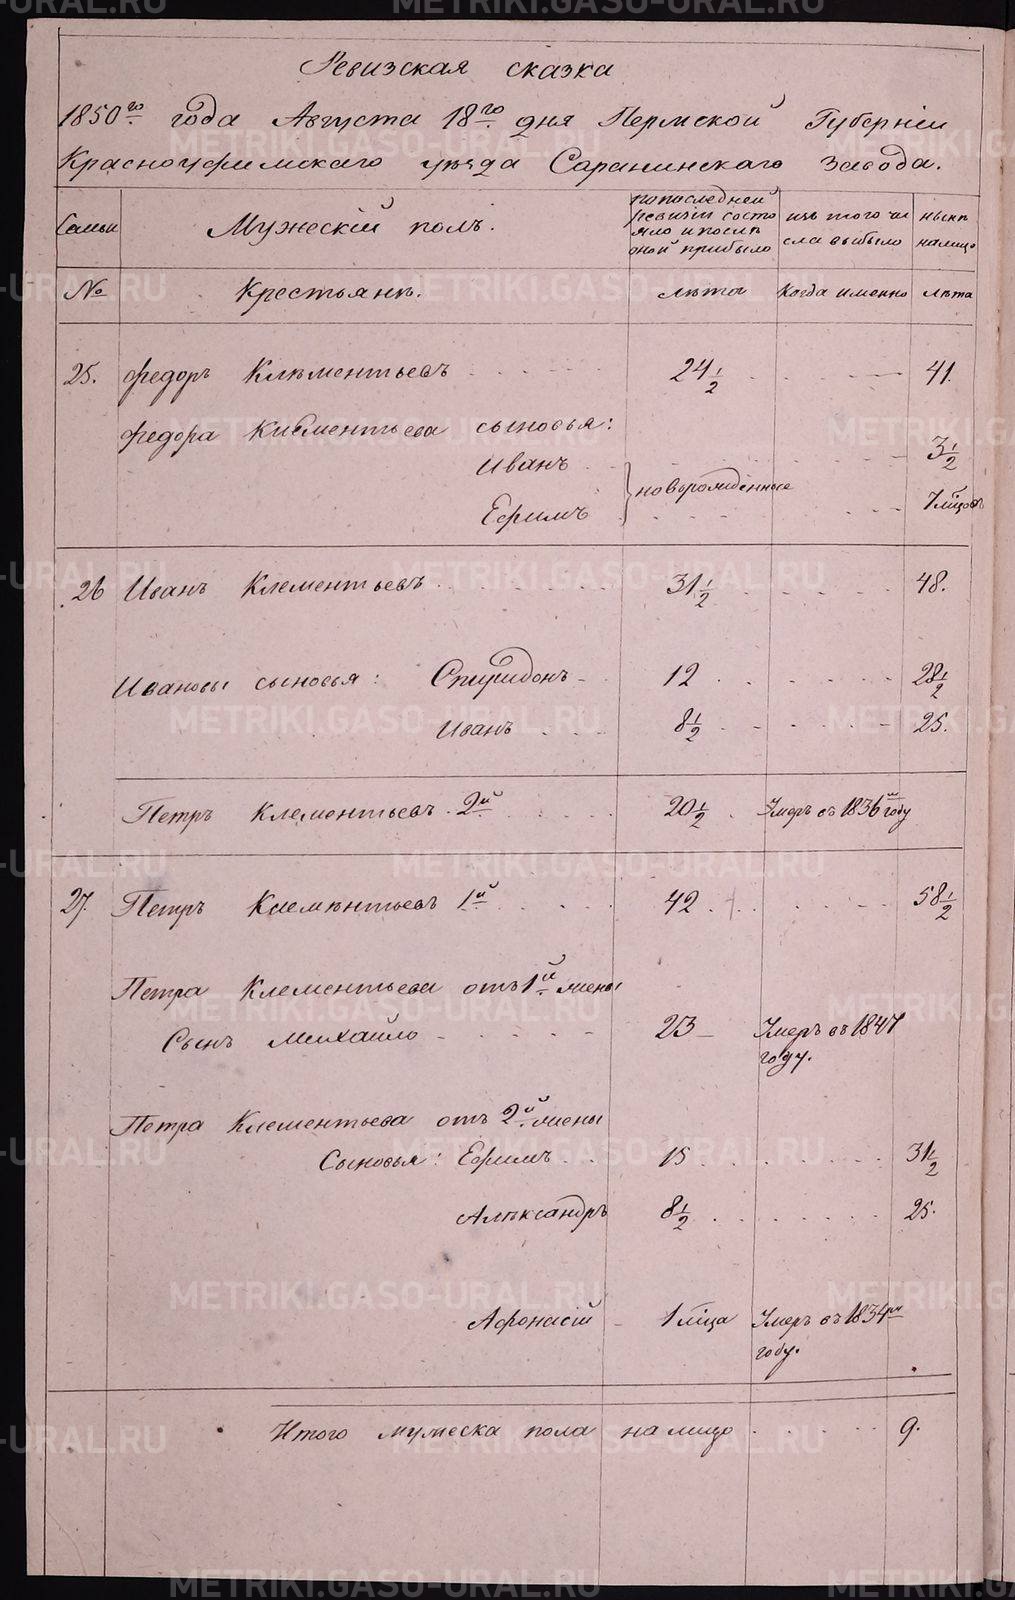 Ревизская сказка
1850го года Августа 18го дня Пермской Губернiи
Красноуфимскаго уѣзда Саранинскаго завода.
Семьи
Мужескiй полъ.
по последней ревизiи состояло и после оной прибыло
изъ того числа выбыло
ныне налицо
№
Крестьяне.
лѣта
Когда именно
лѣта
25. Федоръ Клѣментьевъ 24 1/2 41.
Федора Клементьева сыновья:
Иванъ 3 1/2
новорожденные
Ефимъ 7 мцовъ
26 Иванъ Клементьевъ 31 1/2 48.
Ивановы сыновья: Спиридонъ 12 28 1/2
Иванъ 8 1/2 25.
Петръ Клементьевъ 2й 20 1/2 Умеръ въ 1836м году
27. Петръ Клемѣнтьевъ 1й 42 58 1/2
Петра Клементьева отъ 1й жены
Сынъ Михайло 23 Умеръ въ 1847
году.
Петра Клементьева отъ 2й жены
Сыновья: Ефимъ 15 31 1/2
Алѣксандръ 8 1/2 25.
Афонасiй 1 мца Умеръ въ 1834м
году.
Итого мужеска пола на лицо 9.
METRIKI.GASO-URAL.RU